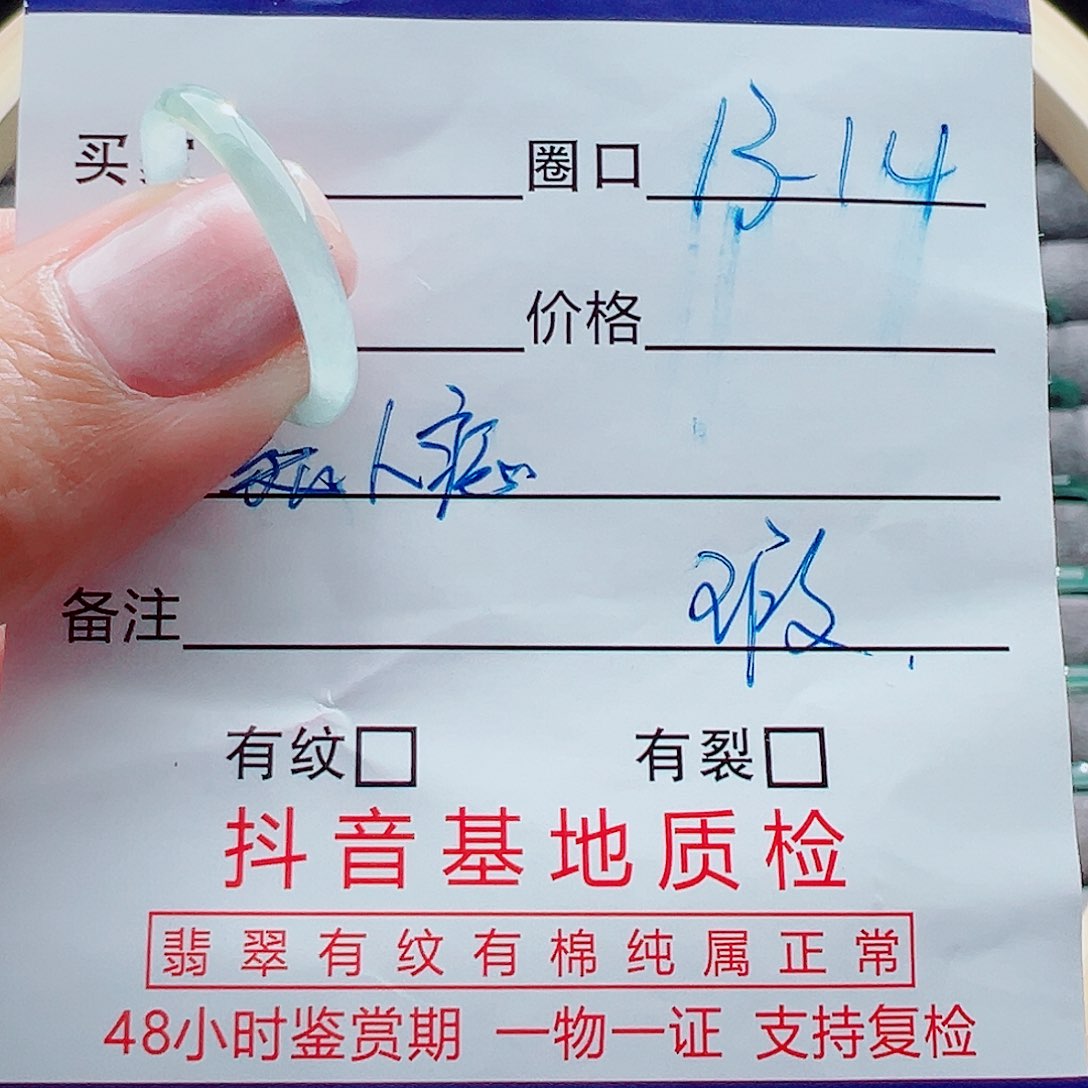 买 圈口 13-14
价格
人
备注 瑕
有纹□ 有裂□
抖音基地质检
翡翠有纹有棉纯属正常
48小时鉴赏期 一物一证 支持复检